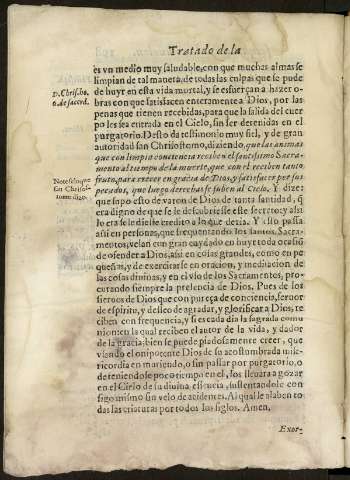 Tratado de la
es vn medio muy saludable, con que muchas almas se
limpian de tal manera, de todas las culpas que se pude
D. Chrisi. ho. de huyr en esta vida mortal, y se esfuerçan a hazer o-
6. de sacerd. bras con que satisfacen enteramente a Dios, por las
penas que tienen recebidas, para que la salida del cuer
po les sea entrada en el Cielo, sin ser detenidas en el
purgatorio. Desto da testimonio muy fiel, y de gran
autoridad san Chrisostomo, diziendo, que las animas
que con limpia conciencia reciben el santissimo Sacra-
mento al tiempo de la muerte, que con el reciben tanto
Note se lo que fruto, para crecer en gracia de Dios, y satisfacer por sus
san Chrisos- pecados, que luego derechas se suben al Cielo. Y dize:
tomo digo. que supo esto de varon de Dios de tanta santidad, q̃
era digno de que se le descubriesse este secreto: y assi
lo era se le diesse credito a lo que dezia. Y esto passa
assi en personas, que frequentando los santos Sacra-
mentos, velan con gran cuydado en huyr toda ocasiõ
de ofender a Dios, assi en cosas grandes, como en pe
queñas, y de exercitarse en oracion, y meditacion de
las cosas diuinas, y en el vso de los Sacramentos, pro-
curando siempre la presencia de Dios. Pues de los
sieruos de Dios que con pureça de conciencia, feruor
de espiritu, y desseo de agradar, y glorificar a Dios, re
ciben con frequencia, y si es cada dia la sagrada comu
nion: en la qual reciben el autor de la vida, y dador
de la gracia: bien se puede piadosamente creer, que
vsando el onipotente Dios de su acostumbrada mise-
ricordia en muriendo, o sin passar por purgatorio, o
deteniendose poco tiempo en el, los lleuara a gozar
en el Cielo de su diuina essencia, sustentandole con
sigo mismo sin velo de accidentes. Al qual le alaben to
das las criaturas por todos los siglos. Amen.
Exor-